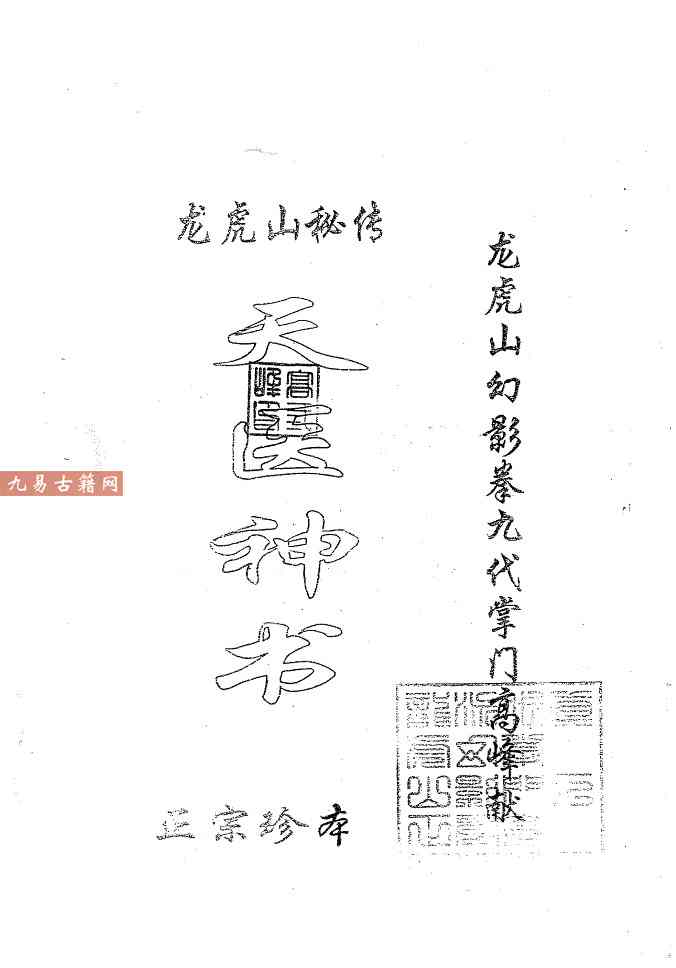 龙虎山秘传
龙虎山幻影拳九代掌门高峰献
天医神书
九易古籍网
正宗珍本